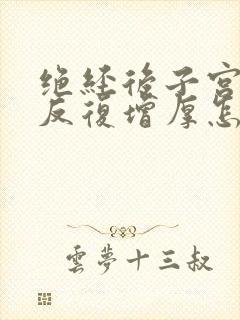 绝经后子宫
反復增厚怎
雲夢十三叔